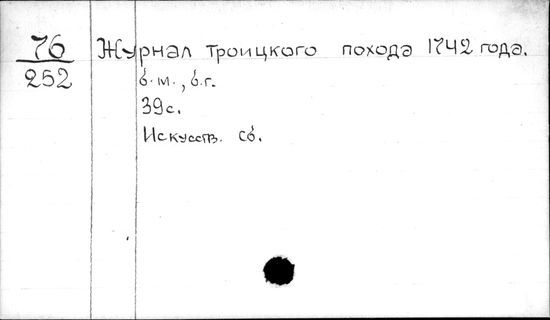 76
252
Журнал троицкого похода 1742 года.
б.м., б.г.
39с.
Искусств. сб.